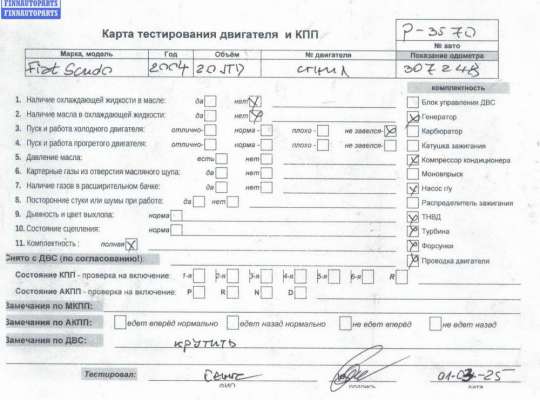 FINNAUTOPARTS
FINNAUTOPARTS
Карта тестирования двигателя и КПП
P-3570
№ авто
Марка, модель Год Объём № двигателя Показание одометра
Fiat Scudo 2004 2.0JTD 307248
комплектность
1. Наличие охлаждающей жидкости в масле: да нет Блок управления ДВС
2. Наличие масла в охлаждающей жидкости: да нет Генератор
3. Пуск и работа холодного двигателя: отлично- норма - плохо - не завелся- Карбюратор
4. Пуск и работа прогретого двигателя: отлично- норма - плохо - не завелся- Катушка зажигания
5. Давление масла: есть нет Компрессор кондиционера
6. Картерные газы из отверстия масляного щупа: да нет Моновпрыск
7. Наличие газов в расширительном бачке: да нет Насос г/у
8. Посторонние стуки или шумы при работе: да нет Распределитель зажигания
9. Дымность и цвет выхлопа: норма ТНВД
10. Состояние сцепления: норма Турбина
11. Комплектность : полная Форсунки
Снято с ДВС (по согласованию!): Проводка двигателя
Состояние КПП - проверка на включение: 1-я 2-я 3-я 4-я 5-я 6-я R
Состояние АКПП - проверка на включение: P R N D
Замечания по МКПП:
Замечания по АКПП: едет вперёд нормально едет назад нормально не едет вперёд не едет назад
Замечания по ДВС: крутить
Тестировал: 01-03-25
ФИО подпись дата